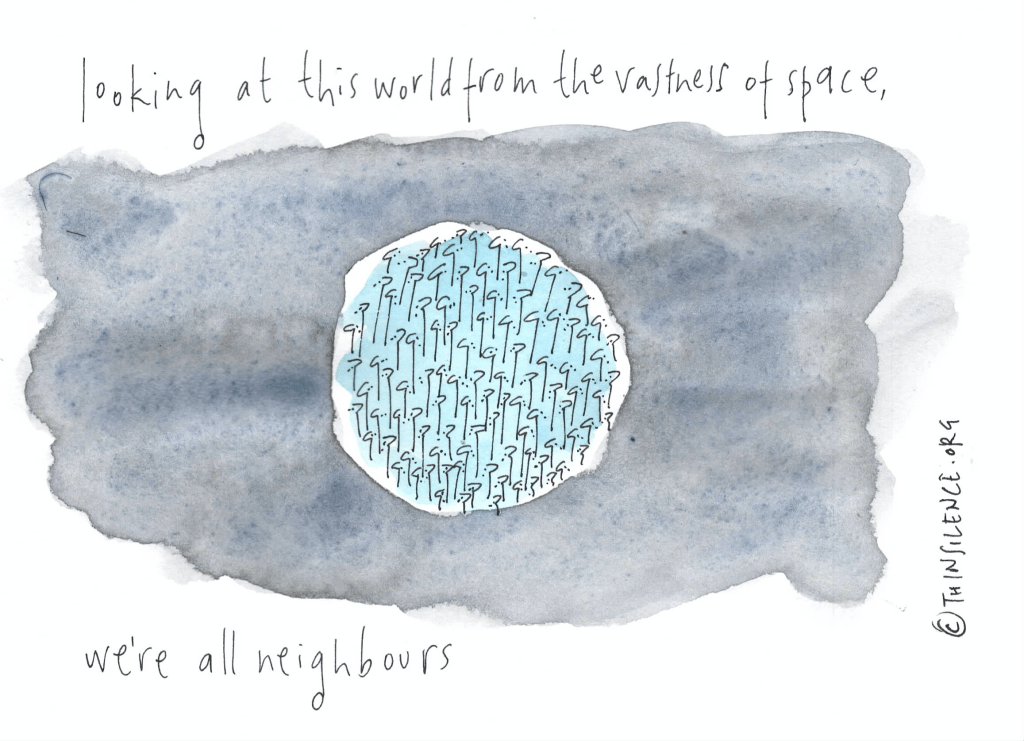 looking at this world from the vastness of space,
we're all neighbours
© THINSILENCE.ORG